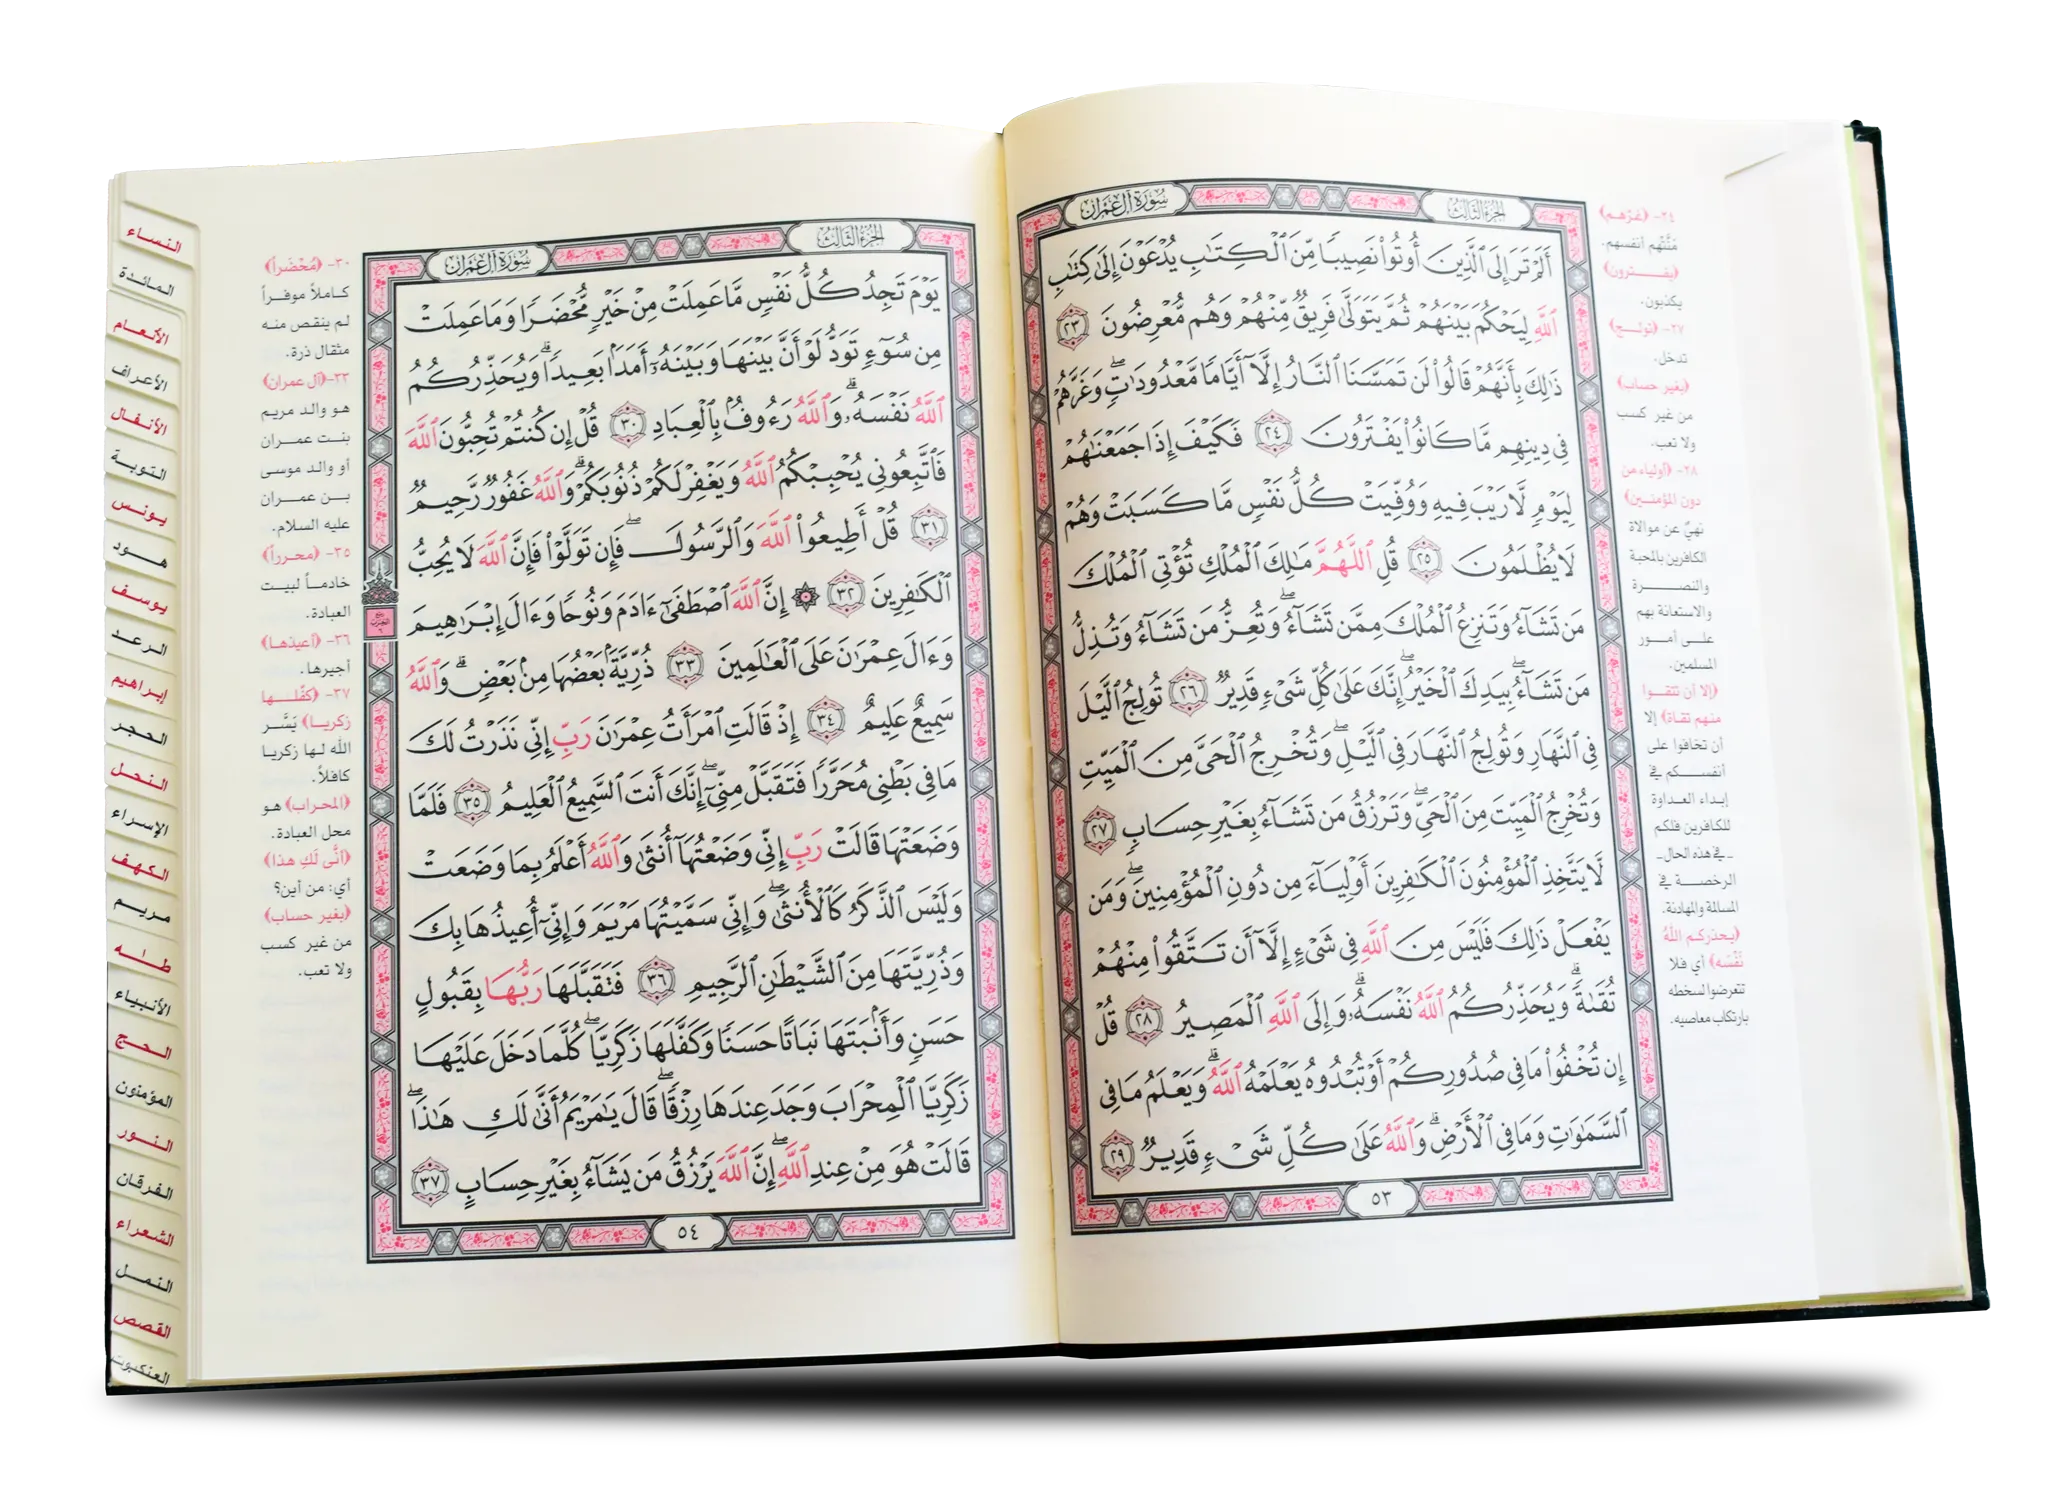 سُورَةُ آلِ عِمْرَان
الجُزْءُ الثَّالِثُ
أَلَمْ تَرَ إِلَى ٱلَّذِينَ أُوتُوا۟ نَصِيبًا مِّنَ ٱلْكِتَٰبِ يُدْعَوْنَ إِلَىٰ كِتَٰبِ
ٱللَّهِ لِيَحْكُمَ بَيْنَهُمْ ثُمَّ يَتَوَلَّىٰ فَرِيقٌ مِّنْهُمْ وَهُم مُّعْرِضُونَ ٢٣
ذَٰلِكَ بِأَنَّهُمْ قَالُوا۟ لَن تَمَسَّنَا ٱلنَّارُ إِلَّآ أَيَّامًا مَّعْدُودَٰتٍ ۖ وَغَرَّهُمْ
فِى دِينِهِم مَّا كَانُوا۟ يَفْتَرُونَ ٢٤ فَكَيْفَ إِذَا جَمَعْنَٰهُمْ
لِيَوْمٍ لَّا رَيْبَ فِيهِ وَوُفِّيَتْ كُلُّ نَفْسٍ مَّا كَسَبَتْ وَهُمْ
لَا يُظْلَمُونَ ٢٥ قُلِ ٱللَّهُمَّ مَٰلِكَ ٱلْمُلْكِ تُؤْتِى ٱلْمُلْكَ
مَن تَشَآءُ وَتَنزِعُ ٱلْمُلْكَ مِمَّن تَشَآءُ وَتُعِزُّ مَن تَشَآءُ وَتُذِلُّ
مَن تَشَآءُ ۖ بِيَدِكَ ٱلْخَيْرُ ۖ إِنَّكَ عَلَىٰ كُلِّ شَىْءٍ قَدِيرٌ ٢٦ تُولِجُ ٱلَّيْلَ
فِى ٱلنَّهَارِ وَتُولِجُ ٱلنَّهَارَ فِى ٱلَّيْلِ ۖ وَتُخْرِجُ ٱلْحَىَّ مِنَ ٱلْمَيِّتِ
وَتُخْرِجُ ٱلْمَيِّتَ مِنَ ٱلْحَىِّ ۖ وَتَرْزُقُ مَن تَشَآءُ بِغَيْرِ حِسَابٍ ٢٧
لَّا يَتَّخِذِ ٱلْمُؤْمِنُونَ ٱلْكَٰفِرِينَ أَوْلِيَآءَ مِن دُونِ ٱلْمُؤْمِنِينَ ۖ وَمَن
يَفْعَلْ ذَٰلِكَ فَلَيْسَ مِنَ ٱللَّهِ فِى شَىْءٍ إِلَّآ أَن تَتَّقُوا۟ مِنْهُمْ
تُقَىٰةً ۗ وَيُحَذِّرُكُمُ ٱللَّهُ نَفْسَهُۥ ۗ وَإِلَى ٱللَّهِ ٱلْمَصِيرُ ٢٨ قُلْ
إِن تُخْفُوا۟ مَا فِى صُدُورِكُمْ أَوْ تُبْدُوهُ يَعْلَمْهُ ٱللَّهُ ۗ وَيَعْلَمُ مَا فِى
ٱلسَّمَٰوَٰتِ وَمَا فِى ٱلْأَرْضِ ۗ وَٱللَّهُ عَلَىٰ كُلِّ شَىْءٍ قَدِيرٌ ٢٩
٥٣
٢٤- ﴿غرّهم﴾
مَنَّتْهم أنفسهم.
﴿يفترون﴾
يكذبون.
٢٧- ﴿تولج﴾
تدخل.
﴿بغير حساب﴾
من غير كسب
ولا تعب.
٢٨- ﴿أولياء من
دون المؤمنين﴾
نهيٌ عن موالاة
الكافرين بالمحبة
والنصرة
والاستعانة بهم
على أمور
المسلمين.
﴿إلا أن تتقوا
منهم تقاة﴾ إلا
أن تخافوا على
أنفسكم في
إبداء العداوة
للكافرين فلكم
ـ في هذه الحال ـ
الرخصة في
المسالمة والمهادنة.
﴿يحذركم اللهُ
نَفْسَه﴾ أي فلا
تتعرضوا لسخطه
بارتكاب معاصيه.
سُورَةُ آلِ عِمْرَان
الجُزْءُ الثَّالِثُ
يَوْمَ تَجِدُ كُلُّ نَفْسٍ مَّا عَمِلَتْ مِنْ خَيْرٍ مُّحْضَرًا وَمَا عَمِلَتْ
مِن سُوٓءٍ تَوَدُّ لَوْ أَنَّ بَيْنَهَا وَبَيْنَهُۥٓ أَمَدًۢا بَعِيدًا ۗ وَيُحَذِّرُكُمُ
ٱللَّهُ نَفْسَهُۥ ۗ وَٱللَّهُ رَءُوفٌۢ بِٱلْعِبَادِ ٣٠ قُلْ إِن كُنتُمْ تُحِبُّونَ ٱللَّهَ
فَٱتَّبِعُونِى يُحْبِبْكُمُ ٱللَّهُ وَيَغْفِرْ لَكُمْ ذُنُوبَكُمْ ۗ وَٱللَّهُ غَفُورٌ رَّحِيمٌ
٣١ قُلْ أَطِيعُوا۟ ٱللَّهَ وَٱلرَّسُولَ ۖ فَإِن تَوَلَّوْا۟ فَإِنَّ ٱللَّهَ لَا يُحِبُّ
ٱلْكَٰفِرِينَ ٣٢ ۞ إِنَّ ٱللَّهَ ٱصْطَفَىٰٓ ءَادَمَ وَنُوحًا وَءَالَ إِبْرَٰهِيمَ
وَءَالَ عِمْرَٰنَ عَلَى ٱلْعَٰلَمِينَ ٣٣ ذُرِّيَّةًۢ بَعْضُهَا مِنۢ بَعْضٍ ۗ وَٱللَّهُ
سَمِيعٌ عَلِيمٌ ٣٤ إِذْ قَالَتِ ٱمْرَأَتُ عِمْرَٰنَ رَبِّ إِنِّى نَذَرْتُ لَكَ
مَا فِى بَطْنِى مُحَرَّرًا فَتَقَبَّلْ مِنِّىٓ ۖ إِنَّكَ أَنتَ ٱلسَّمِيعُ ٱلْعَلِيمُ ٣٥ فَلَمَّا
وَضَعَتْهَا قَالَتْ رَبِّ إِنِّى وَضَعْتُهَآ أُنثَىٰ وَٱللَّهُ أَعْلَمُ بِمَا وَضَعَتْ
وَلَيْسَ ٱلذَّكَرُ كَٱلْأُنثَىٰ ۖ وَإِنِّى سَمَّيْتُهَا مَرْيَمَ وَإِنِّىٓ أُعِيذُهَا بِكَ
وَذُرِّيَّتَهَا مِنَ ٱلشَّيْطَٰنِ ٱلرَّجِيمِ ٣٦ فَتَقَبَّلَهَا رَبُّهَا بِقَبُولٍ
حَسَنٍ وَأَنۢبَتَهَا نَبَاتًا حَسَنًا وَكَفَّلَهَا زَكَرِيَّا ۖ كُلَّمَا دَخَلَ عَلَيْهَا
زَكَرِيَّا ٱلْمِحْرَابَ وَجَدَ عِندَهَا رِزْقًا ۖ قَالَ يَٰمَرْيَمُ أَنَّىٰ لَكِ هَٰذَا ۖ
قَالَتْ هُوَ مِنْ عِندِ ٱللَّهِ ۖ إِنَّ ٱللَّهَ يَرْزُقُ مَن يَشَآءُ بِغَيْرِ حِسَابٍ ٣٧
٥٤
٣٠- ﴿مُحْضَراً﴾
كاملاً موفراً
لم ينقص منه
مثقال ذرة.
٣٣- ﴿آل عمران﴾
هو والد مريم
بنت عمران
أو والد موسى
بن عمران
عليه السلام.
٣٥- ﴿محرراً﴾
خادماً لبيت
العبادة.
٣٦- ﴿أعيذها﴾
أجيرها.
٣٧- ﴿كفّلها
زكريا﴾ يَسَّر
الله لها زكريا
كافلاً.
﴿المحراب﴾ هو
محل العبادة.
﴿أنّى لَكِ هذا﴾
أي: من أين؟
﴿بغير حساب﴾
من غير كسب
ولا تعب.
النساء
المائدة
الأنعام
الأعراف
الأنفال
التوبة
يونس
هود
يوسف
الرعد
إبراهيم
الحجر
النحل
الإسراء
الكهف
مريم
طه
الأنبياء
الحج
المؤمنون
النور
الفرقان
الشعراء
النمل
القصص
العنكبوت